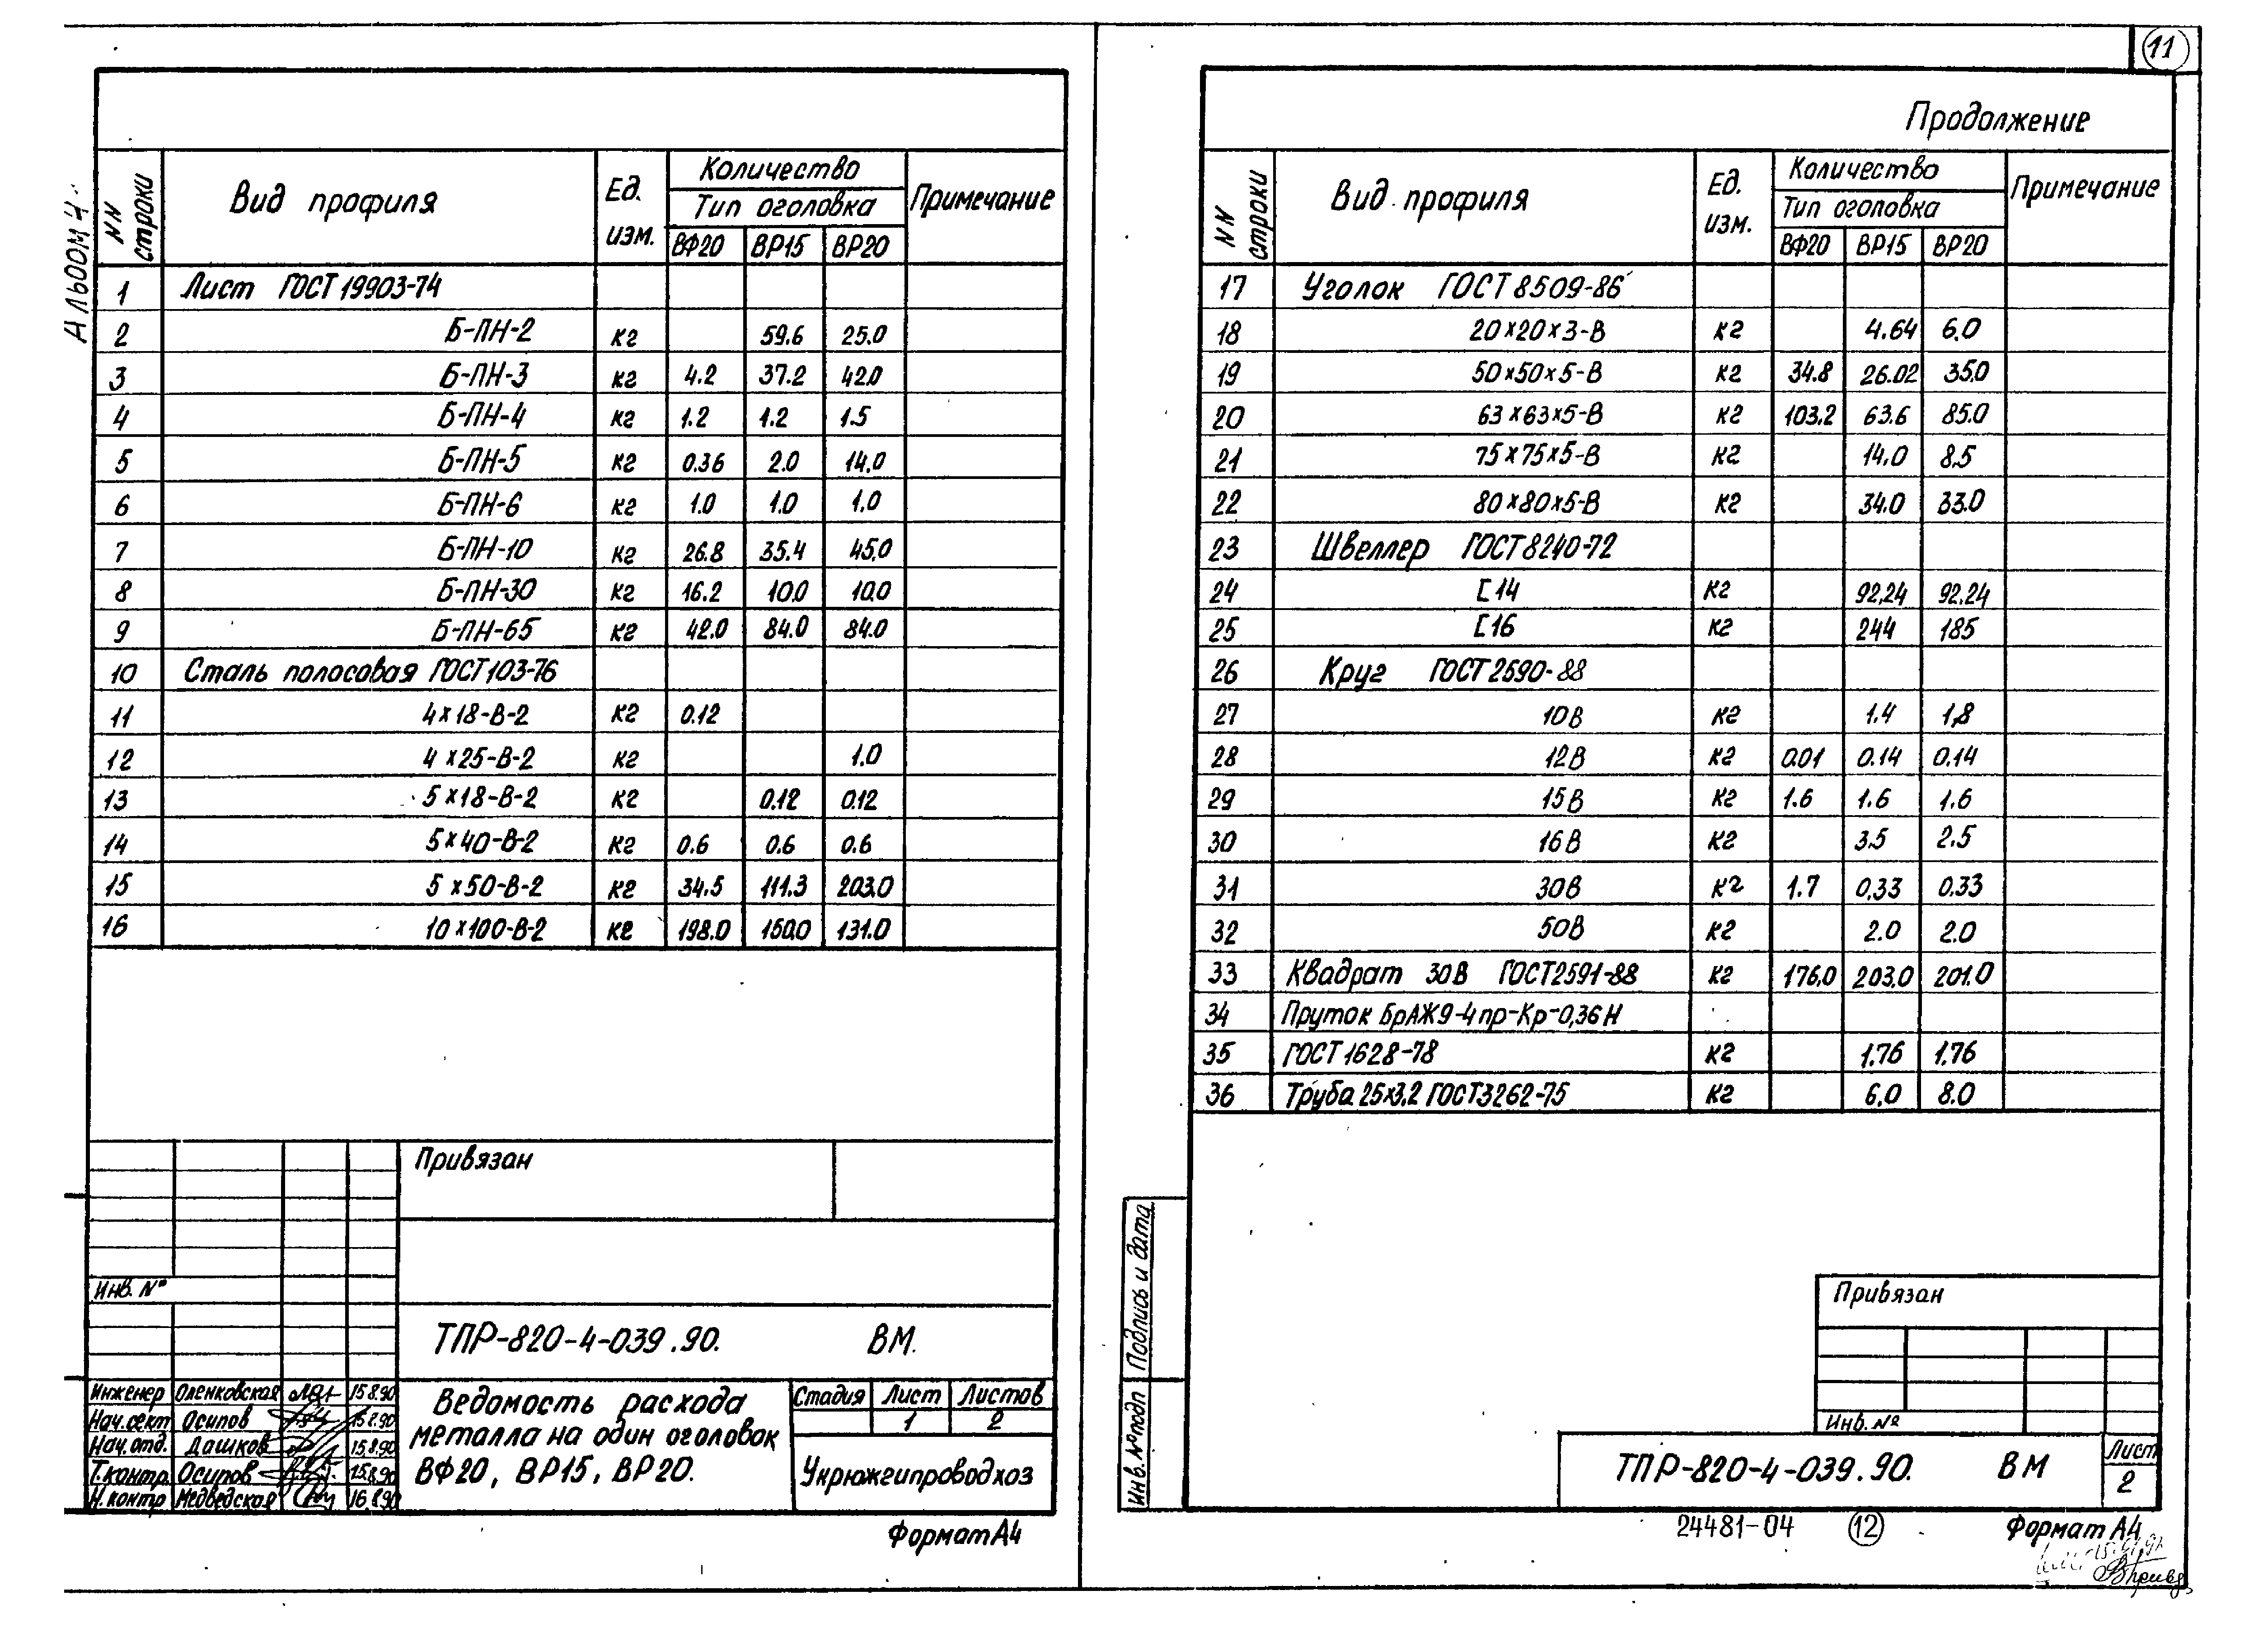 11
Альбом 4
NN строки Вид профиля Ед. изм. Количество Примечание
Тип оголовка
ВФ20 ВР15 ВР20
1 Лист ГОСТ 19903-74
2 Б-ПН-2 кг 59.6 25.0
3 Б-ПН-3 кг 4.2 37.2 42.0
4 Б-ПН-4 кг 1.2 1.2 1.5
5 Б-ПН-5 кг 0.36 2.0 14.0
6 Б-ПН-6 кг 1.0 1.0 1.0
7 Б-ПН-10 кг 26.8 35.4 45.0
8 Б-ПН-30 кг 16.2 10.0 10.0
9 Б-ПН-65 кг 42.0 84.0 84.0
10 Сталь полосовая ГОСТ 103-76
11 4×18-В-2 кг 0.12
12 4×25-В-2 кг 1.0
13 5×18-В-2 кг 0.12 0.12
14 5×40-В-2 кг 0.6 0.6 0.6
15 5×50-В-2 кг 34.5 111.3 203.0
16 10×100-В-2 кг 198.0 150.0 131.0
Привязан
Инв. №
ТПР-820-4-039.90. ВМ.
Инженер Оленковская 15.8.90
Нач.сект Осипов 15.8.90
Нач.отд. Дашков 15.8.90
Т.контр. Осипов 15.8.90
Н.контр Медведская 16.8.90
Ведомость расхода
металла на один оголовок
ВФ20, ВР15, ВР20.
Стадия Лист Листов
1 2
Укрюжгипроводхоз
Формат А4
Продолжение
NN строки Вид профиля Ед. изм. Количество Примечание
Тип оголовка
ВФ20 ВР15 ВР20
17 Уголок ГОСТ 8509-86
18 20×20×3-В кг 4.64 6.0
19 50×50×5-В кг 34.8 26.02 35.0
20 63×63×5-В кг 103.2 63.6 85.0
21 75×75×5-В кг 14.0 8.5
22 80×80×5-В кг 34.0 33.0
23 Швеллер ГОСТ 8240-72
24 [14 кг 92.24 92.24
25 [16 кг 244 185
26 Круг ГОСТ 2590-88
27 10В кг 1.4 1,8
28 12В кг 0.01 0.14 0.14
29 15В кг 1.6 1.6 1.6
30 16В кг 3.5 2.5
31 30В кг 1.7 0.33 0.33
32 50В кг 2.0 2.0
33 Квадрат 30В ГОСТ 2591-88 кг 176.0 203.0 201.0
34 Пруток БрАЖ9-4пр-Кр-0,36Н
35 ГОСТ 1628-78 кг 1.76 1.76
36 Труба 25×3,2 ГОСТ 3262-75 кг 6.0 8.0
Подпись и дата
Инв. № подл
Привязан
Инв. №
ТПР-820-4-039.90. ВМ
Лист
2
24481-04 12 Формат А4